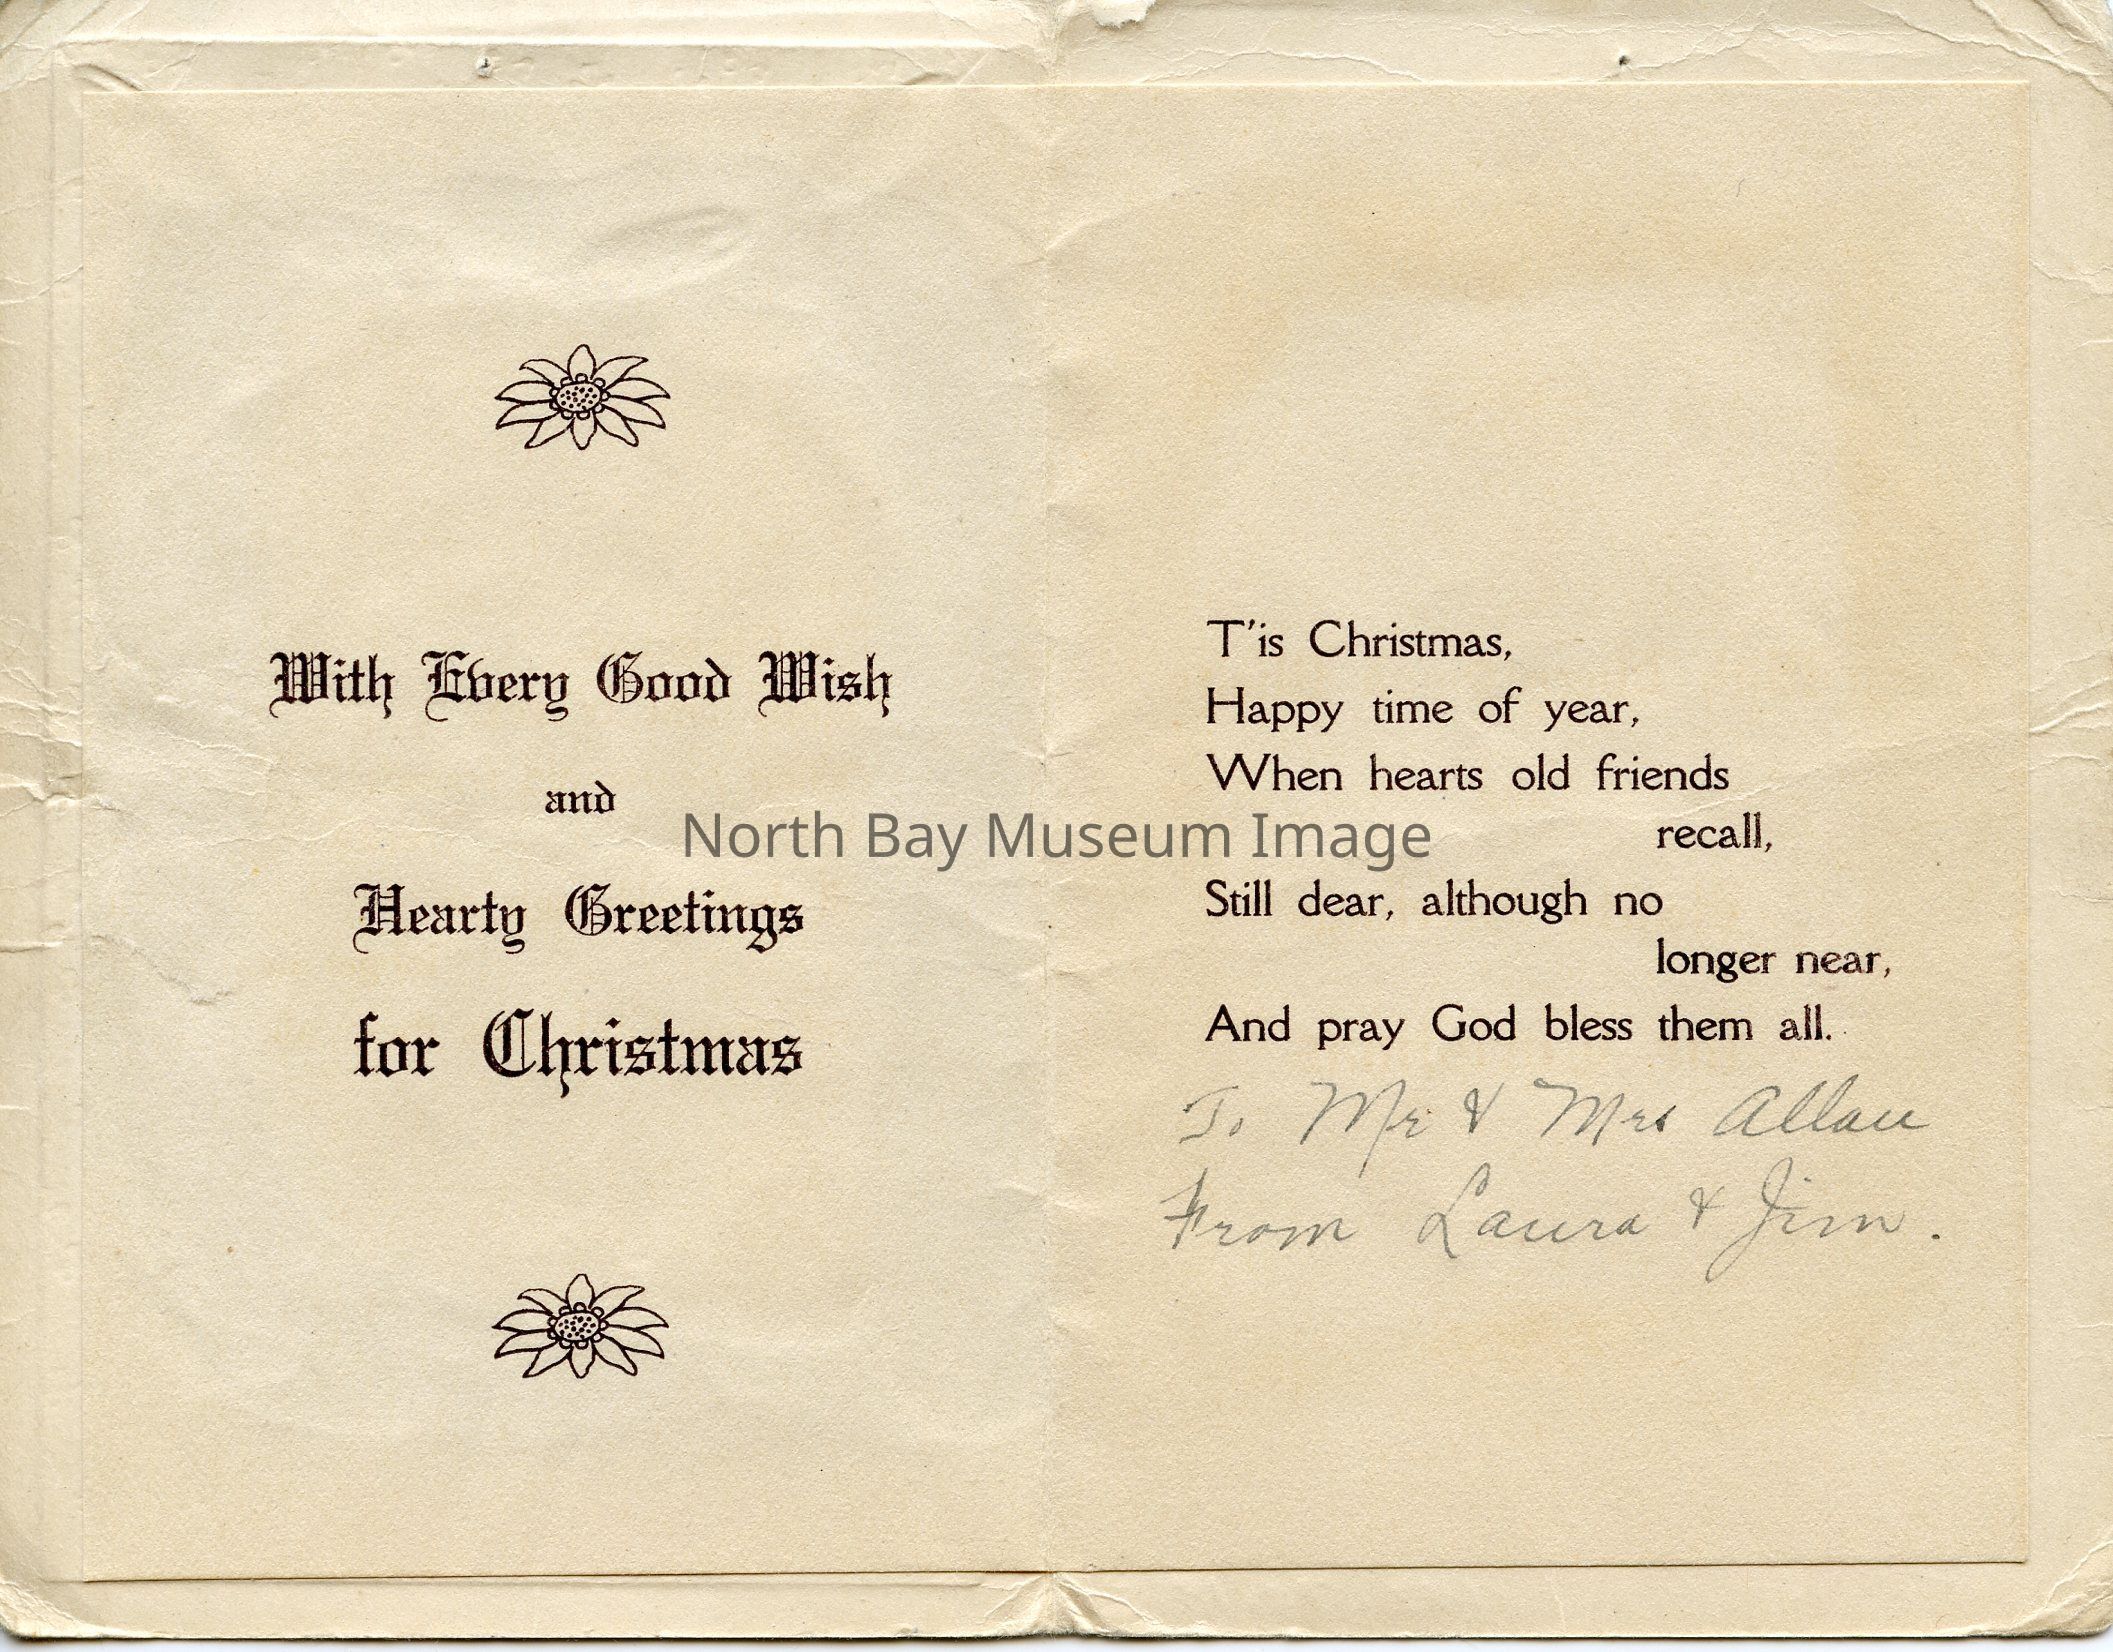 With Every Good Wish
and
Hearty Greetings
for Christmas
T'is Christmas,
Happy time of year,
When hearts old friends
recall,
Still dear, although no
longer near,
And pray God bless them all.
To Mr & Mrs Allan
From Laura & Jim.
North Bay Museum Image